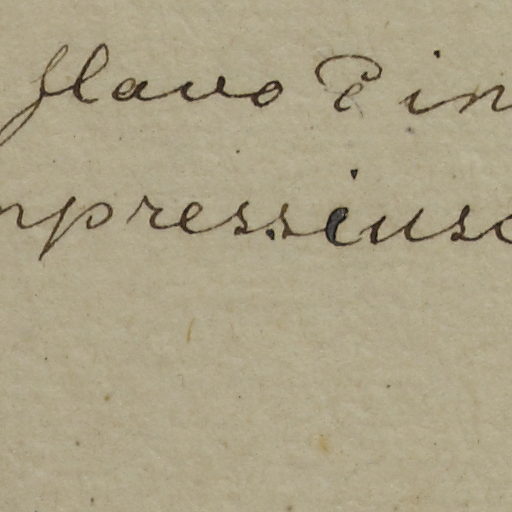 flavo P in
npressius